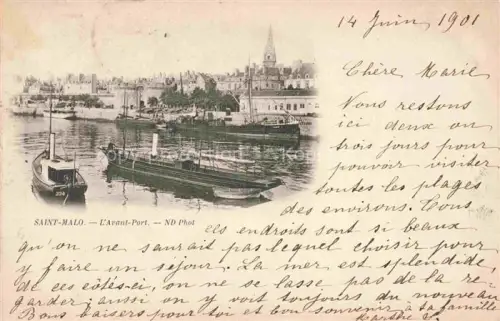 14 Juin 1901
Chère Marie
Nous restons
ici deux ou
trois jours pour
pouvoir visiter
toutes les plages
des environs. Tous
SAINT-MALO. — L'Avant-Port. — ND Phot
ces endroits sont si beaux
qu'on ne saurait pas lequel choisir pour
y faire un séjour. La mer est splendide
de ces côtés-ci, on ne se lasse pas de la re-
garder; aussi on y voit toujours du nouveau
Bons baisers pour toi et bon souvenir à ta famille